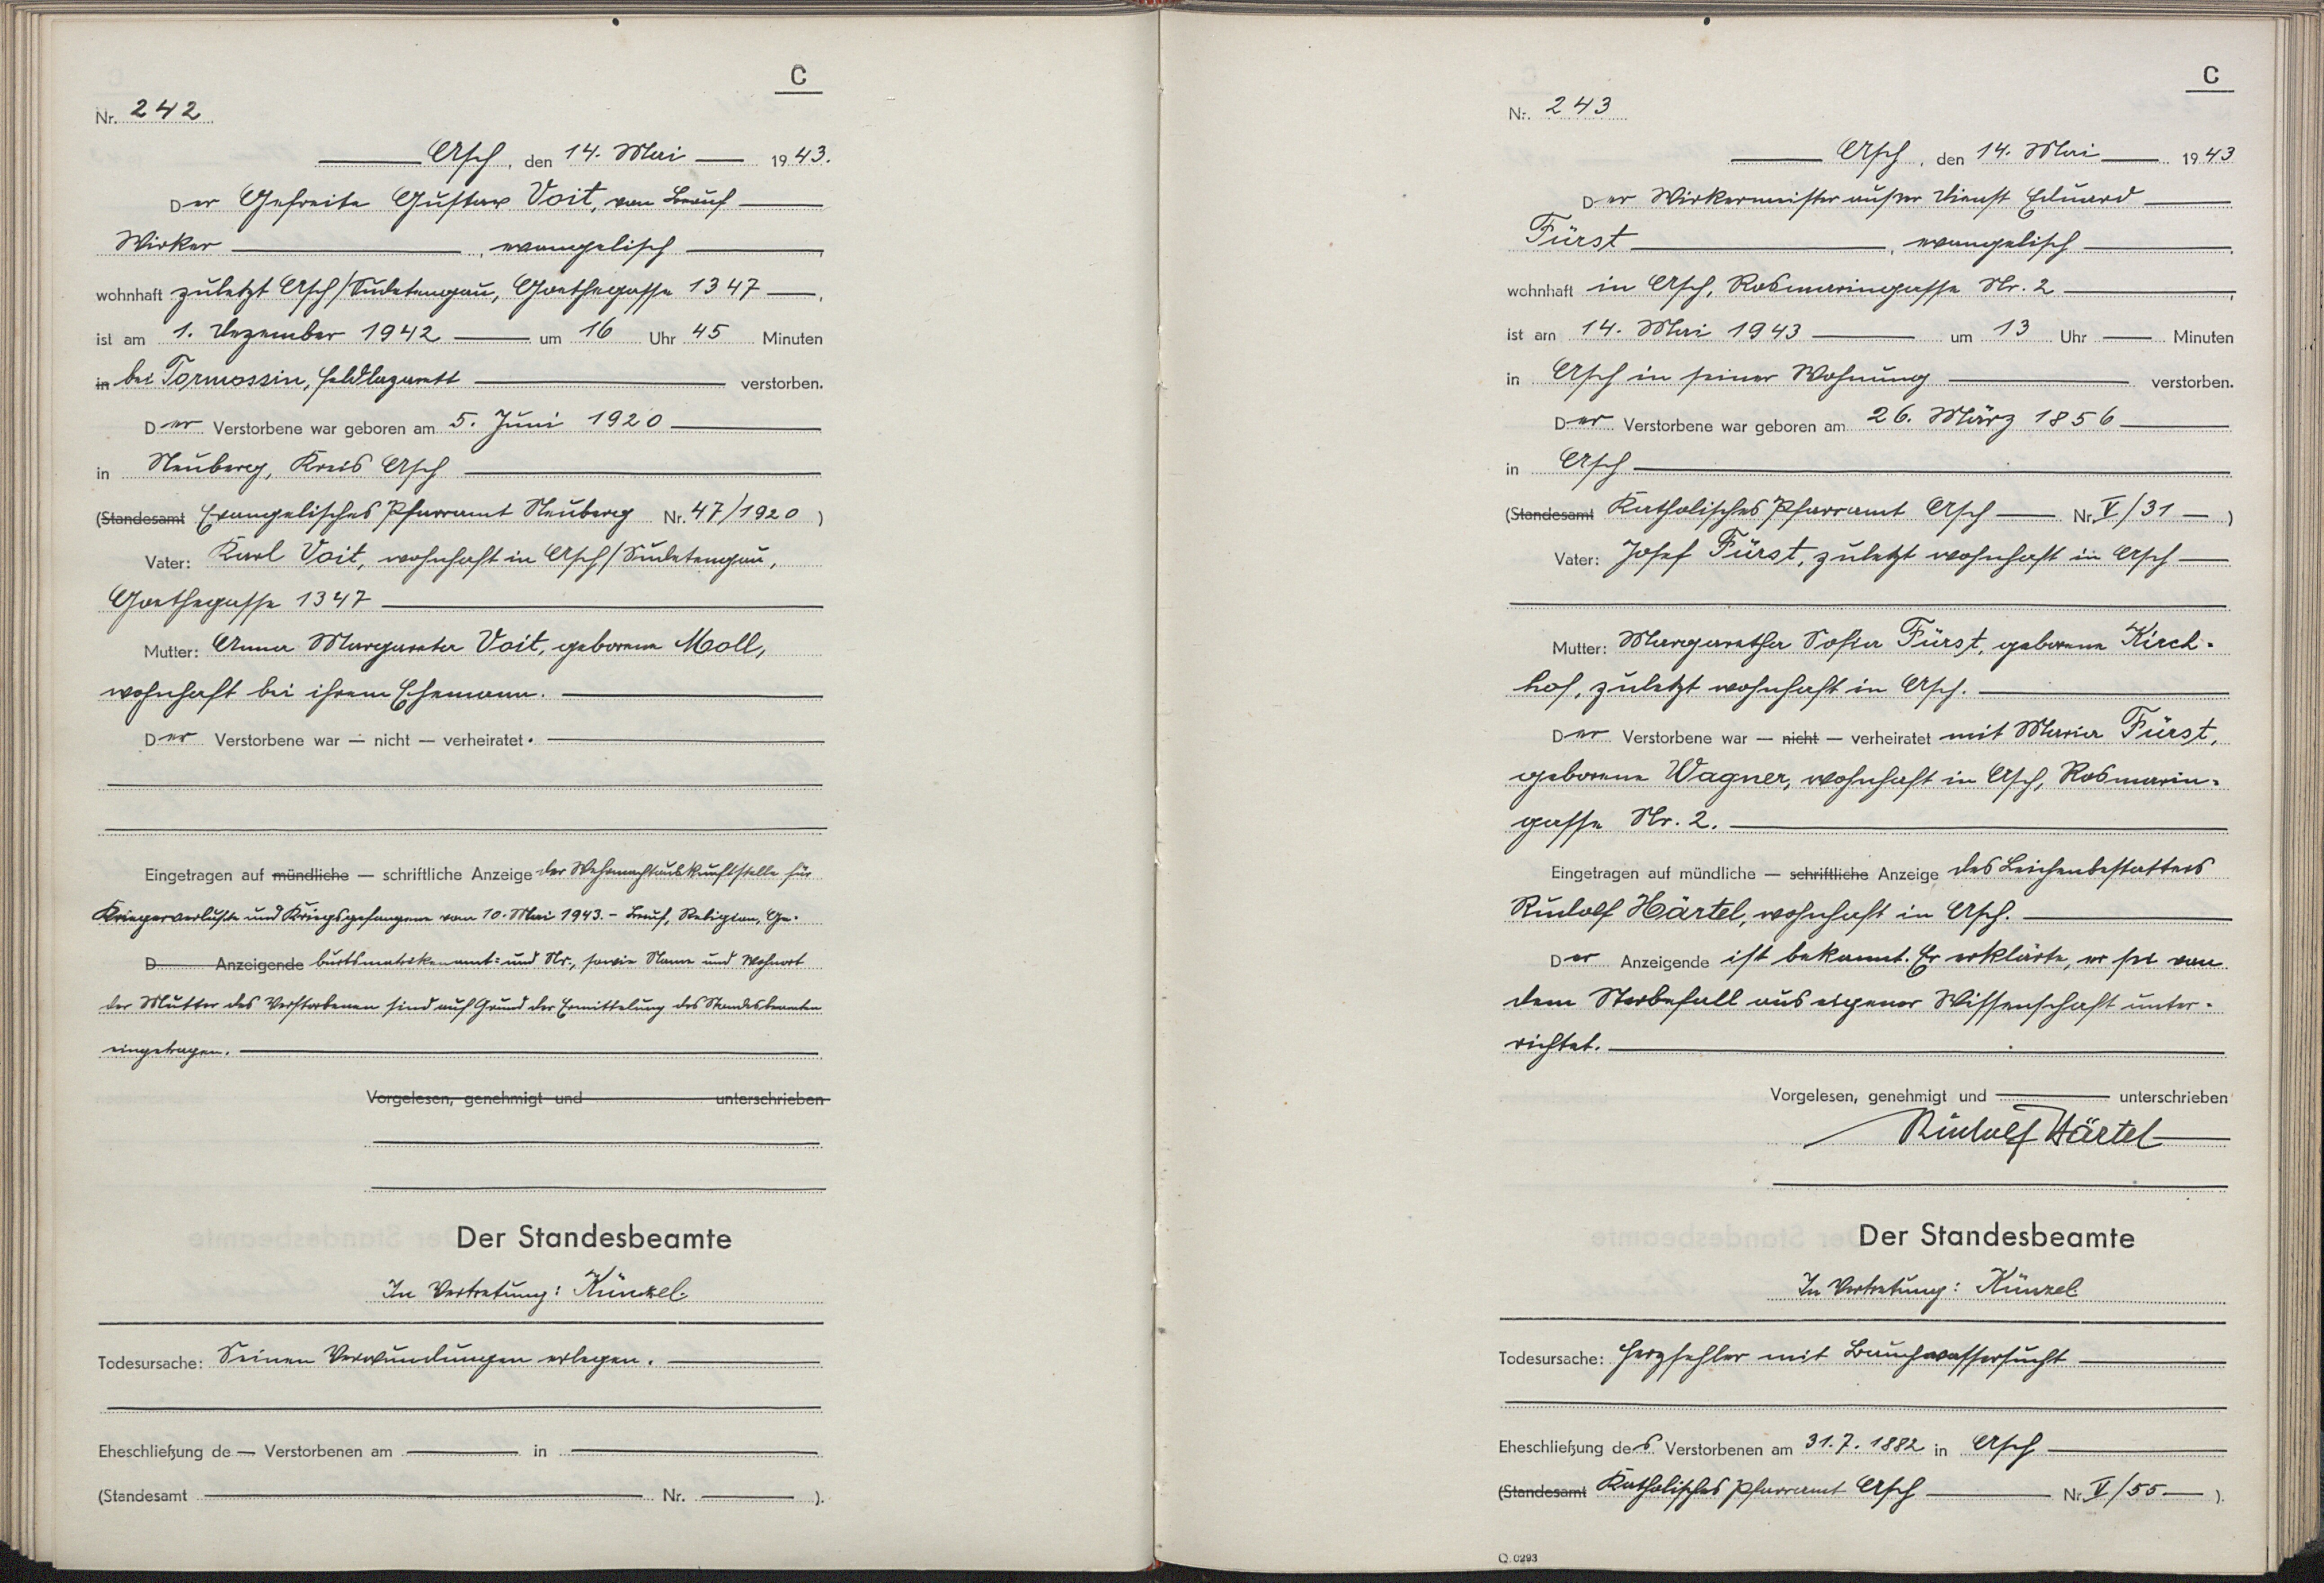 C
Nr. 242
Asch, den 14. Mai 1943.
Der Gefreite Gustav Voit, von Beruf
Wirker, evangelisch,
wohnhaft zuletzt Asch/Sudetengau, Goethegasse 1347,
ist am 1. Dezember 1942 um 16 Uhr 45 Minuten
in bei Tormossin, Feldlazarett verstorben.
Der Verstorbene war geboren am 5. Juni 1920
in Neuberg, Kreis Asch
(Standesamt Evangelisches Pfarramt Neuberg Nr. 47/1920)
Vater: Karl Voit, wohnhaft in Asch/Sudetengau,
Goethegasse 1347
Mutter: Anna Margareta Voit, geborene Moll,
wohnhaft bei ihrem Ehemann.
Der Verstorbene war — nicht — verheiratet.
Eingetragen auf mündliche — schriftliche Anzeige der Wehrmachtauskunftstelle für
Kriegerverluste und Kriegsgefangene vom 10. Mai 1943. - Beruf, Religion, Ge-
D Anzeigende burtsmatrikenamt= und Nr., sowie Name und Wohnort
der Mutter des Verstorbenen sind auf Grund der Ermittelung des Standesbeamten
eingetragen.
Vorgelesen, genehmigt und unterschrieben
Der Standesbeamte
In Vertretung: Künzel.
Todesursache: Seinen Verwundungen erlegen.
Eheschließung de — Verstorbenen am in
(Standesamt Nr. ).
C
Nr. 243
Asch, den 14. Mai 1943
Der Wirkermeister außer Dienst Eduard
Fürst, evangelisch,
wohnhaft in Asch, Rosmaringasse Nr. 2,
ist am 14. Mai 1943 um 13 Uhr — Minuten
in Asch in seiner Wohnung verstorben.
Der Verstorbene war geboren am 26. März 1856
in Asch
(Standesamt Katholisches Pfarramt Asch — Nr. V/31 —)
Vater: Josef Fürst, zuletzt wohnhaft in Asch
Mutter: Margaretha Sofia Fürst, geborene Kirch-
hof, zuletzt wohnhaft in Asch.
Der Verstorbene war — nicht — verheiratet mit Maria Fürst,
geborene Wagner, wohnhaft in Asch, Rosmarin-
gasse Nr. 2.
Eingetragen auf mündliche — schriftliche Anzeige des Leichenbestatters
Rudolf Härtel, wohnhaft in Asch.
Der Anzeigende ist bekannt. Er erklärte, er sei von
dem Sterbefall aus eigener Wissenschaft unter-
richtet.
Vorgelesen, genehmigt und unterschrieben
Rudolf Härtel
Der Standesbeamte
In Vertretung: Künzel
Todesursache: Herzfehler mit Bauchwassersucht
Eheschließung des Verstorbenen am 31.7.1882 in Asch
(Standesamt Katholisches Pfarramt Asch Nr. V/55 —).
Q 0293